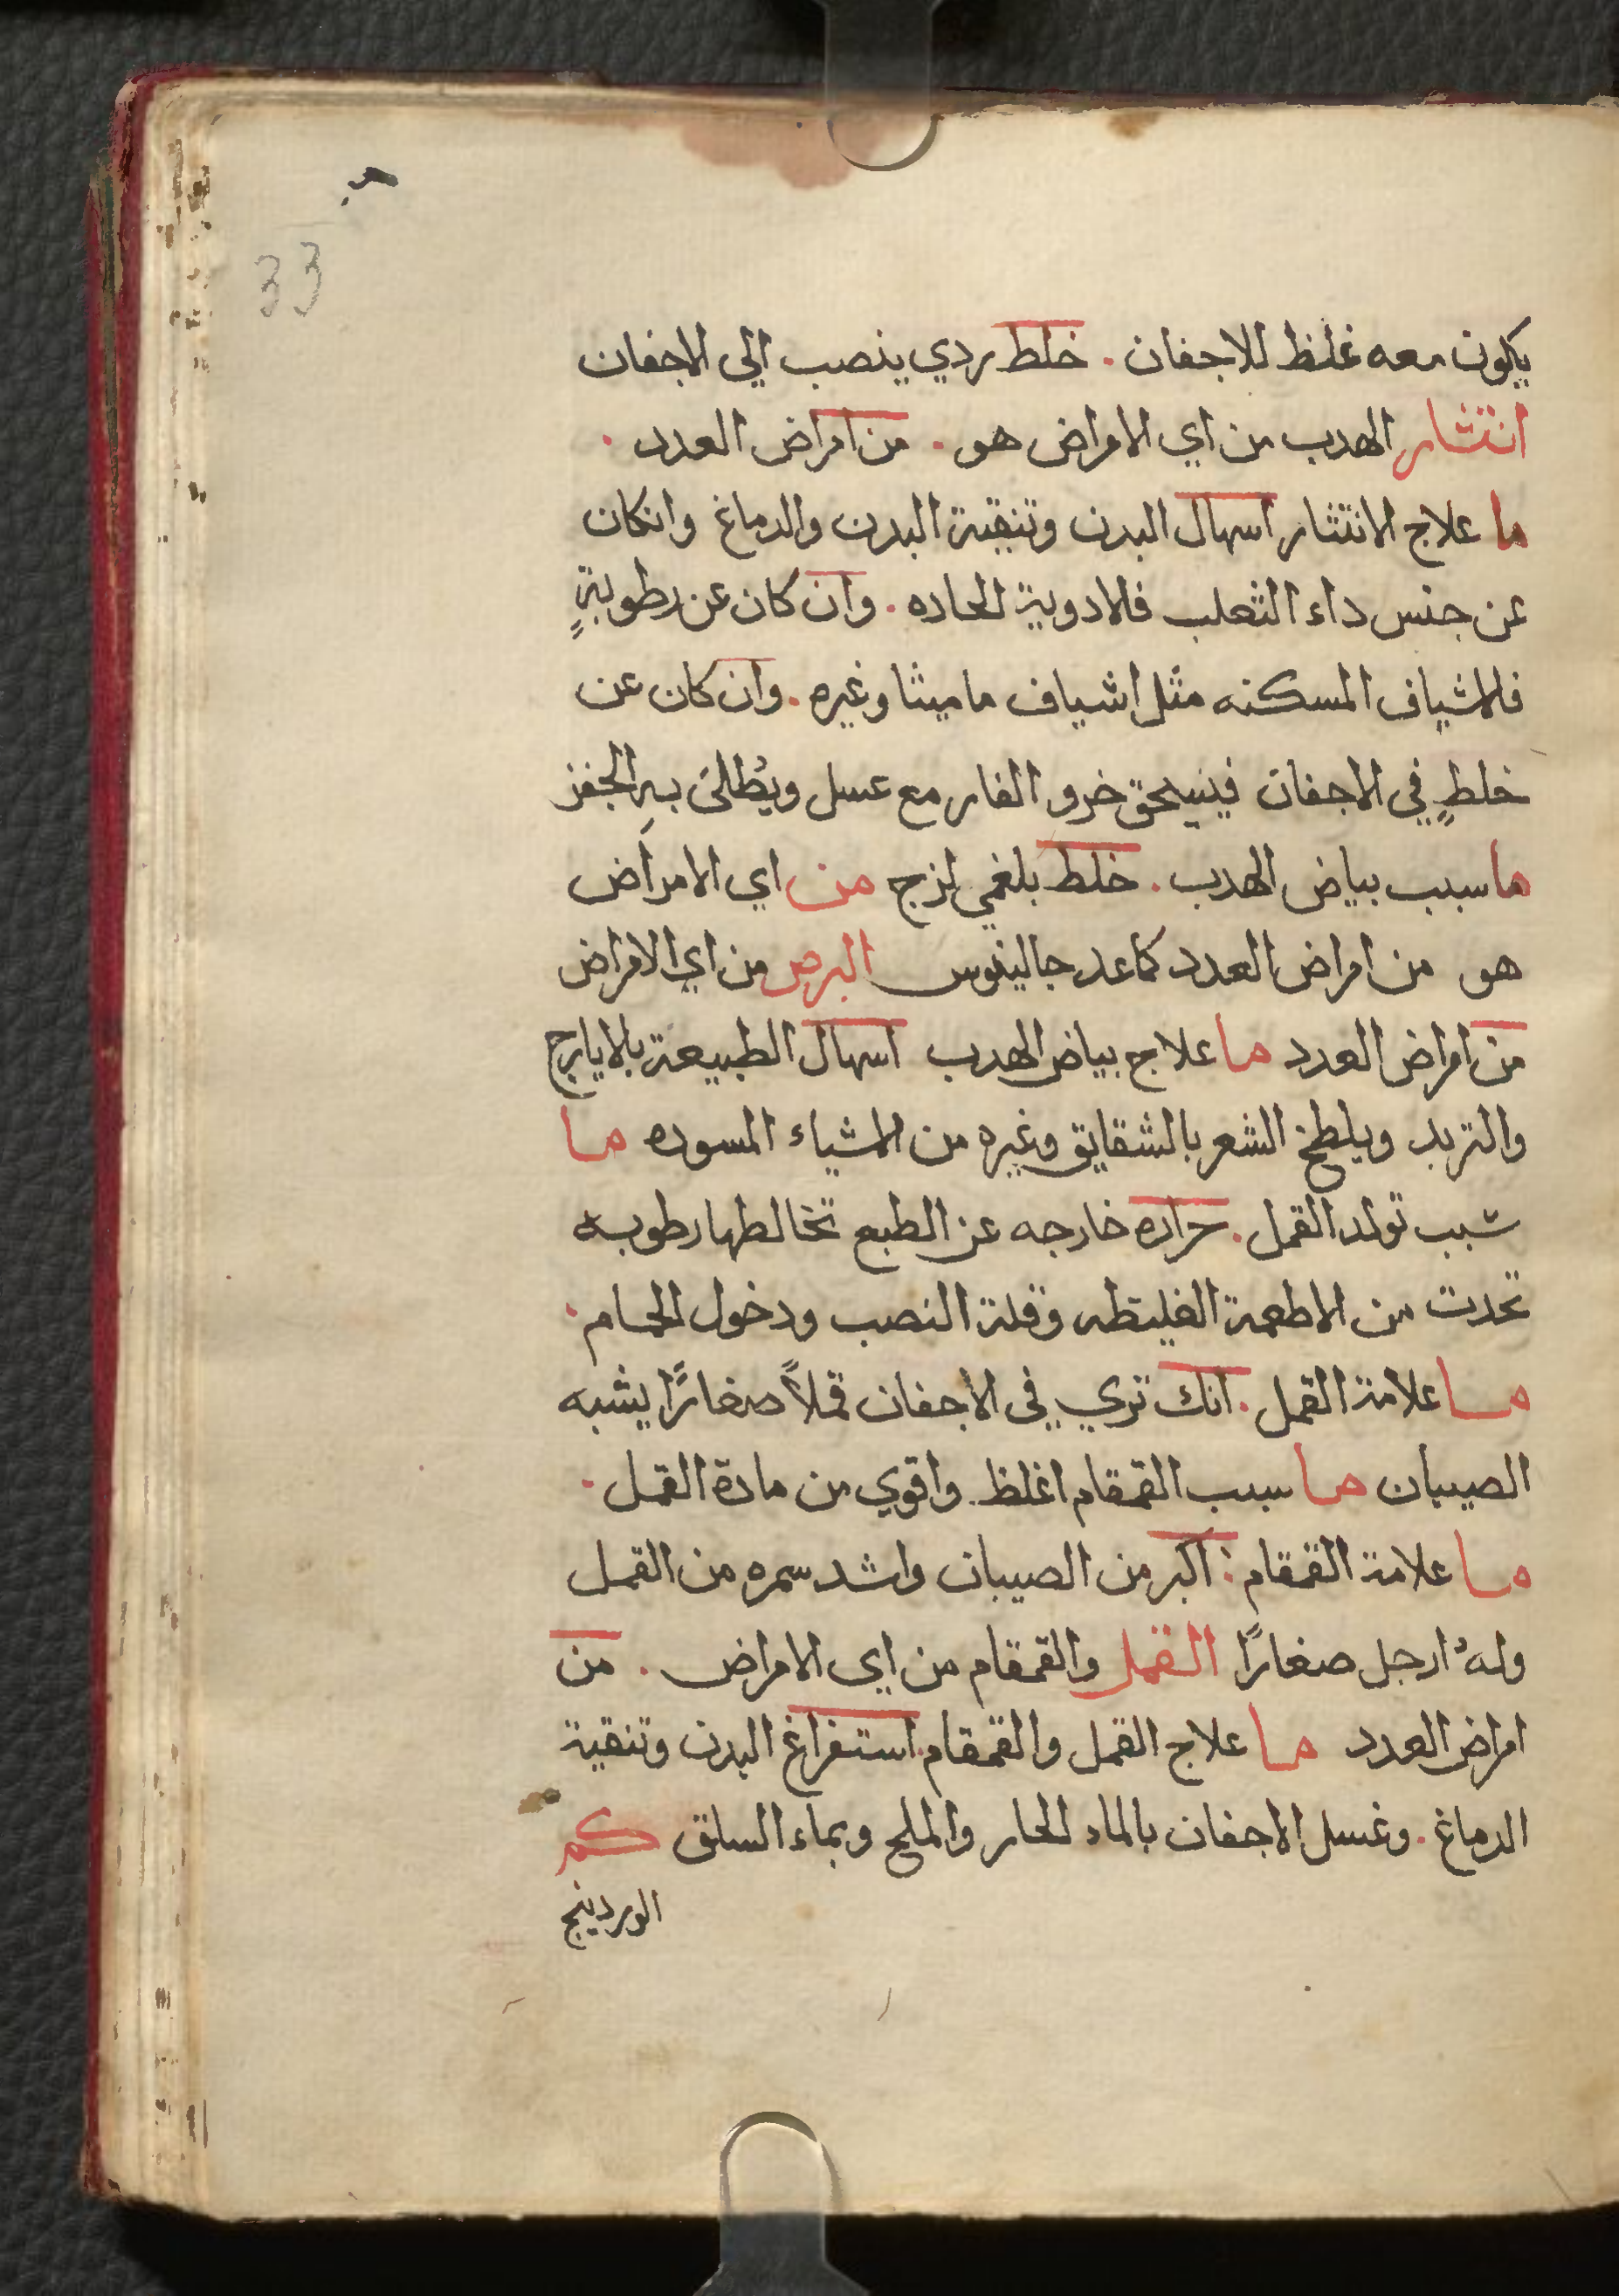 33
يكون معه غلظ للاجفان . خلط ردي ينصب الي الاجفان
انتثار الهدب من اي الامراض هو . من امراض العدد .
ما علاج الانتثار اسهال البدن وتنقية البدن والدماغ وانكان
عن جنس داء الثعلب فالادوية الحاده . وان كان عن رطوبةٍ
فالاشياف المسكنه مثل اشياف ماميثا وغيره . وان كان عن
خلطٍ في الاجفان فيسحق خرو الفار مع عسل ويُطلىَ بهِ الجفن
ما سبب بياض الهدب . خلط بلغمي لزج من اي الامراض
هو من امراض العدد كما عد جالينوس البرص من اي الامراض
من امراض العدد ما علاج بياض الهدب اسهال الطبيعة بالايارج
والتربد ويلطخ الشعر بالشقايق وغيره من الاشياء المسوده ما
سبب تولد القمل . حراره خارجه عن الطبع تخالطها رطوبه
تحدث من الاطعمة الغليظه وقلة النصب ودخول الحمام .
ما علامة القمل . انك تري في الاجفان قملاً صغارًا يشبه
الصيبان ما سبب القمقام اغلظ واقوي من مادة القمل .
ما علامة القمقام : اكبر من الصيبان واشد سمره من القمل
ولهُ ارجل صغارًا القمل والقمقام من اي الامراض . من
امراض العدد ما علاج القمل والقمقام . استفراغ البدن وتنقية
الدماغ . وغسل الاجفان بالماء الحار والملح وبماء السلق كم
الوردينج